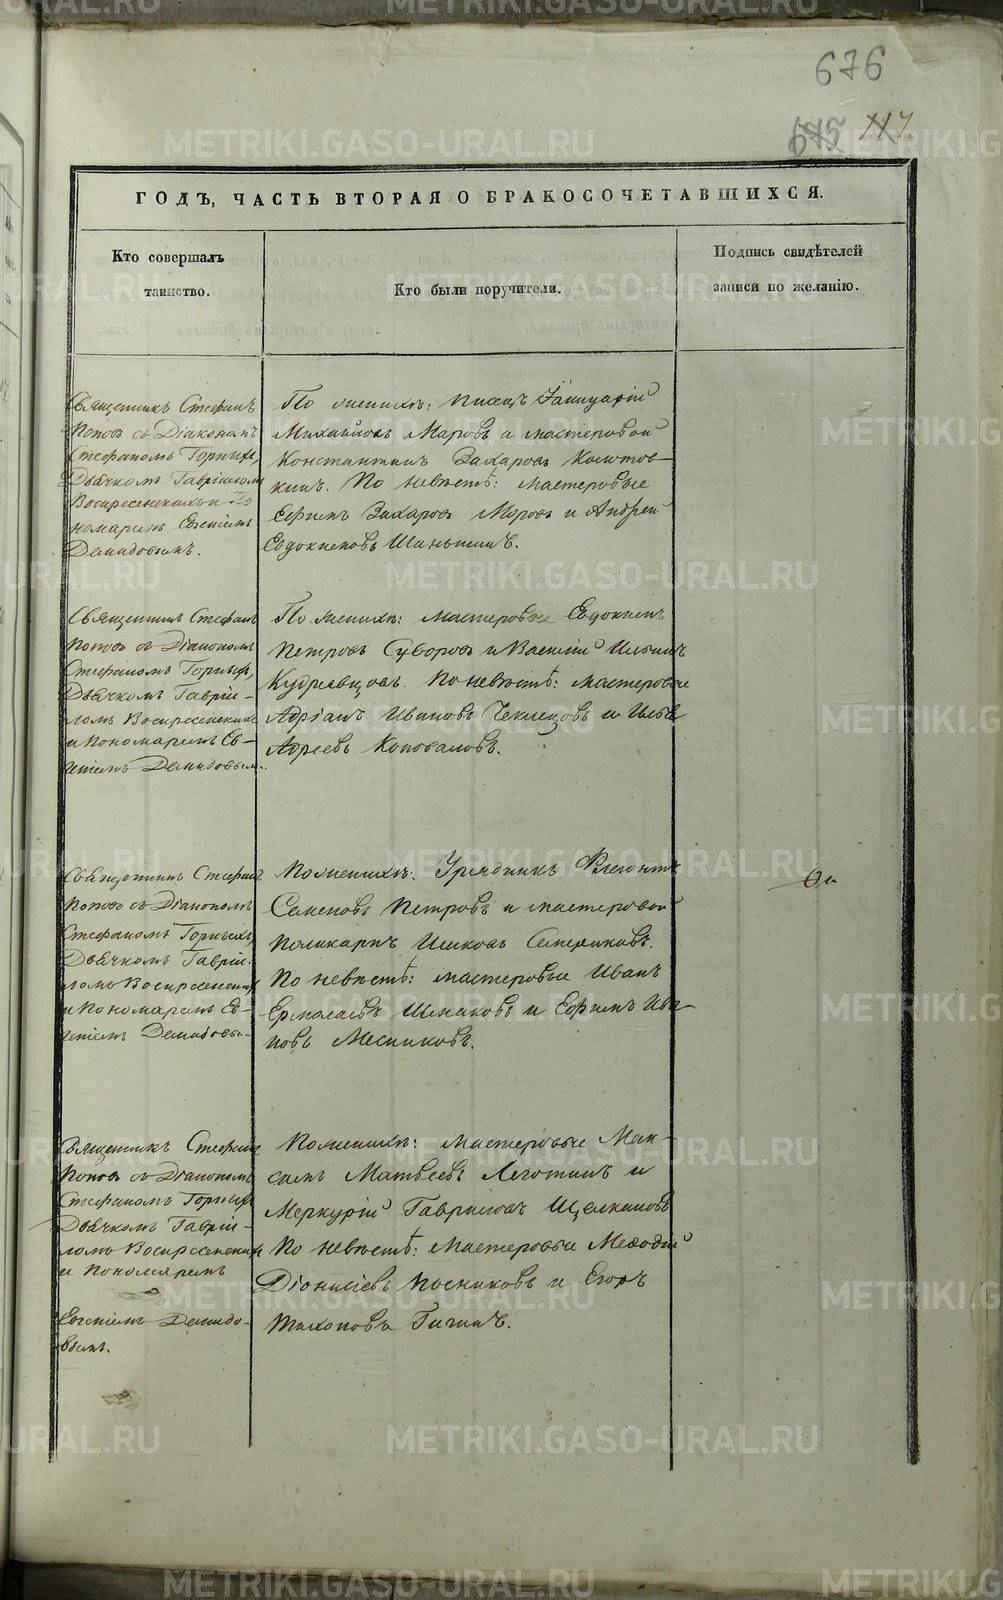 676
675 117.
ГОДЪ, ЧАСТЬ ВТОРАЯ О БРАКОСОЧЕТАВШИХСЯ.
Кто совершалъ
таинство.
Кто были поручители.
Подпись свидѣтелей
записи по желанію.
Священникъ Стефанъ
Поповъ съ Діакономъ
Стефаномъ Горныхъ,
Дьячкомъ Гавріиломъ
Воскресенскимъ и По
номаремъ Евгеніемъ
Демидовымъ.
По женихѣ: писецъ Іаннуарій
Михайловъ Маровъ и мастеровой
Константинъ Захаровъ Колотов-
кинъ. По невѣстѣ: мастеровые
Ефимъ Захаровъ Маровъ и Андрей
Евдокимовъ Шаньгинъ.
Священникъ Стефанъ
Поповъ съ Діакономъ
Стефаномъ Горныхъ,
Дьячкомъ Гаврій-
ломъ Воскресенскимъ
и Пономаремъ Ев-
геніемъ Демидовым.
По женихѣ: мастеровые Евдокимъ
Петровъ Суворовъ и Василій Ильинъ
Кудрявцовъ. По невѣстѣ: мастеровые
Адріанъ Ивановъ Чеклецовъ и Илья
Адреевъ Коноваловъ.
Священникъ Стефанъ
Поповъ съ Діакономъ
Стефаномъ Горныхъ,
Дьячкомъ Гаврій-
ломъ Воскресенским
и Пономаремъ Ев-
геніемъ Демидовы-
По женихѣ: Урядникъ Флегонтъ
Семеновъ Петровъ и мастеровой
Поликарпъ Ишковъ.
По невѣстѣ: мастеровые Иванъ
Ермолаевъ Шмаковъ и Ефимъ Ива-
новъ Месниковъ.
Священникъ Стефанъ
Поповъ съ Діакономъ
Стефаномъ Горныхъ
Дьячкомъ Гаврій-
ломъ Воскресенским
и Пономаремъ
Евгеніемъ Демидо-
вымъ.
По женихѣ: Мастеровые Мак-
симъ Матвеевъ Леготинъ и
Меркурій Гавриловъ Щелкановъ
По невѣстѣ: Мастеровые Меѳодій
Діонисіевъ Посниковъ и Егоръ
Тихоновъ Гигинъ.
METRIKI.GASO-URAL.RU